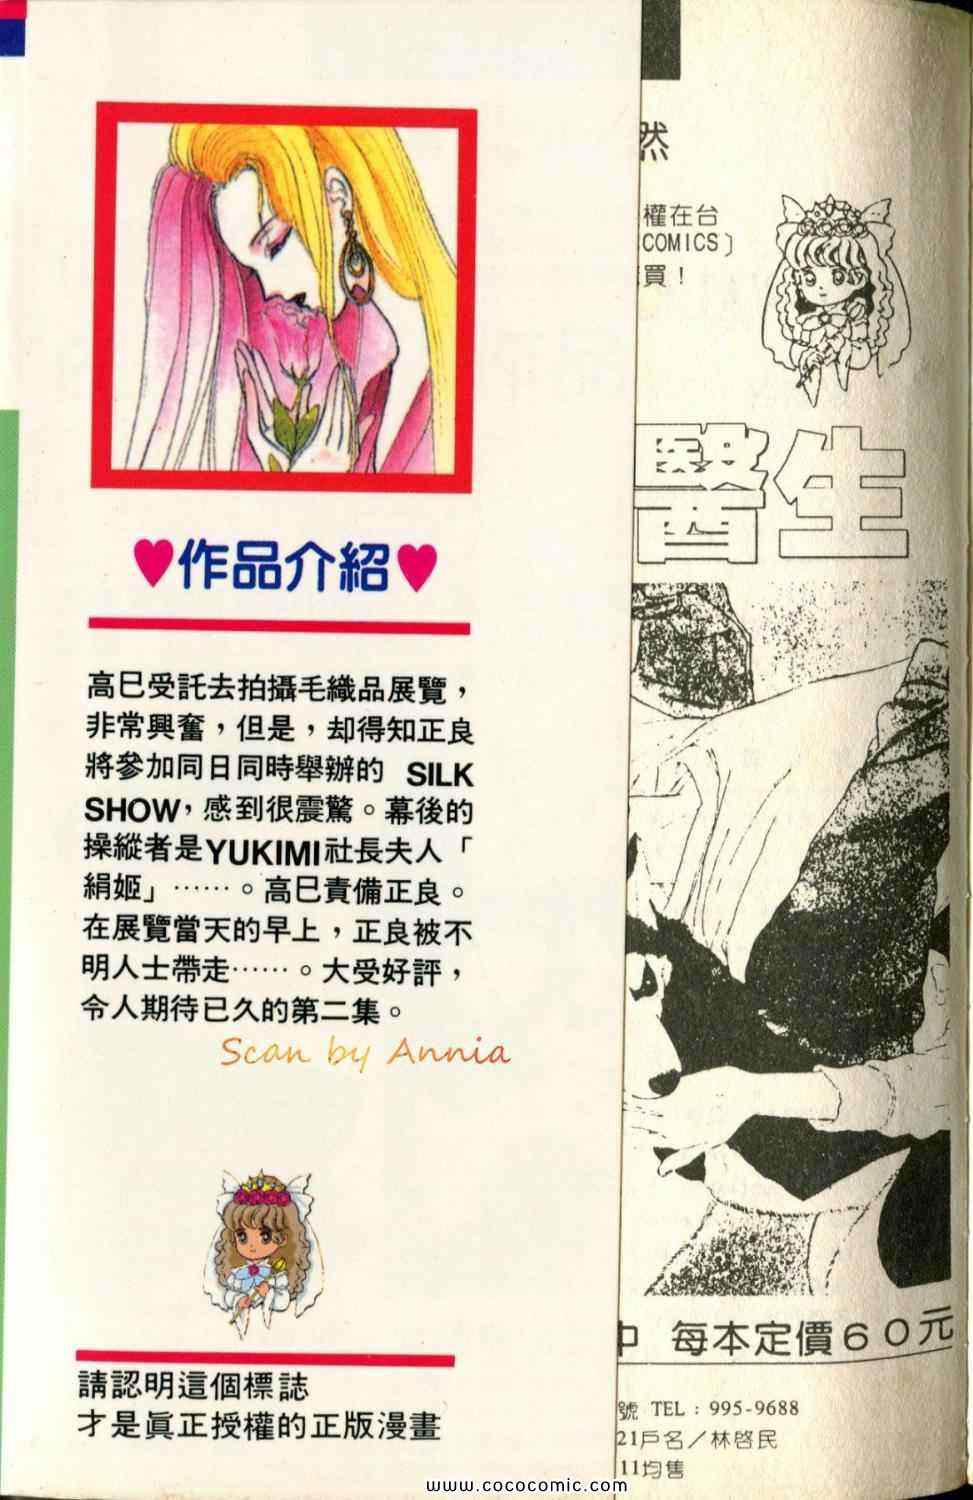 ♥作品介紹♥
高巳受託去拍攝毛織品展覽，
非常興奮，但是，却得知正良
將參加同日同時舉辦的 SILK
SHOW，感到很震驚。幕後的
操縱者是YUKIMI社長夫人「
絹姬」……。高巳責備正良。
在展覽當天的早上，正良被不
明人士帶走……。大受好評，
令人期待已久的第二集。
Scan by Annia
請認明這個標誌
才是眞正授權的正版漫畫
然
權在台
COMICS〕
買！
醫生
中 每本定價６０元
號 TEL：995-9688
21戶名／林啓民
11均售
www.cococomic.com